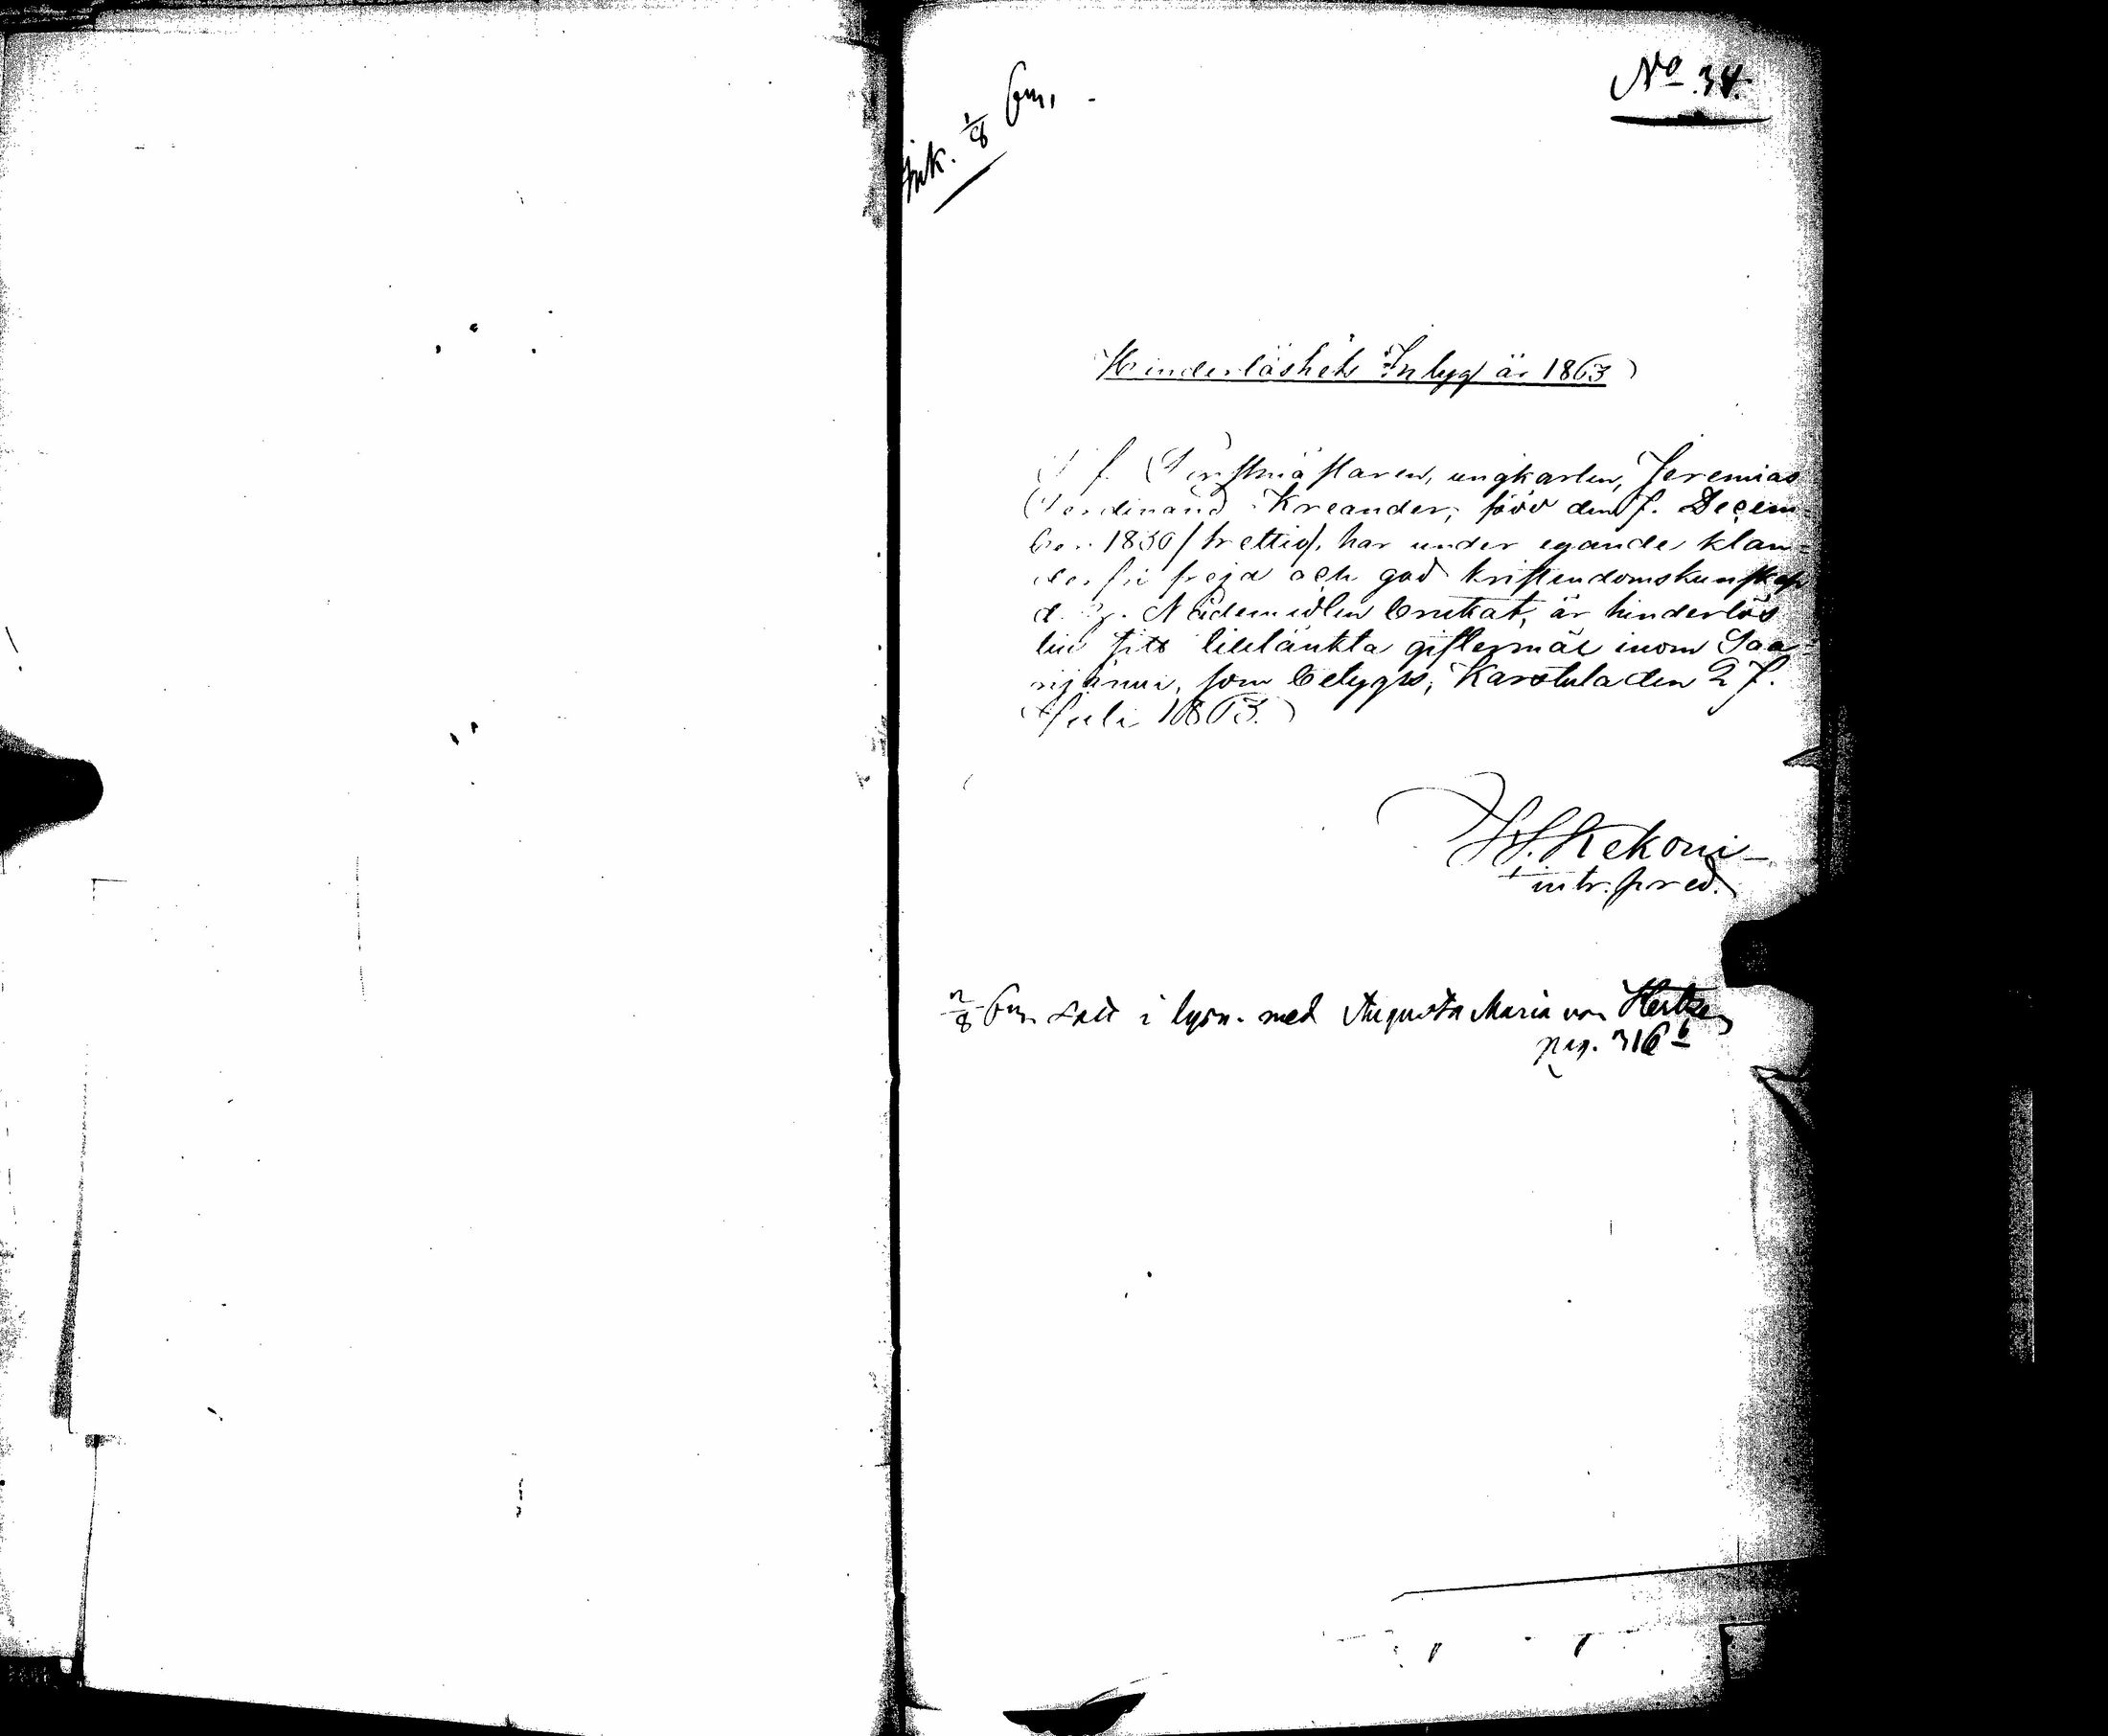 No 34.
Ink. 1/8 63.
Hinderlöshets Intyg år 1863
T. f. Forstmästaren, ungkarlen, Jeremias
Ferdinand Kreander, född den 7. Decem=
ber 1830 /trettio/, har under egande klan=
derfri frejd och god kristendomskunskap
d. Nådemedlen brukat, är hinderlös
till sitt tilltänkta giftermål inom Saa=
rijärvi, som betygas, Karstula den 27.
Juli 1863.
Kekoni
intr. pred.
2/8 63 tald i lysn. med Augusta Maria von Hertzen
pag. 316 b